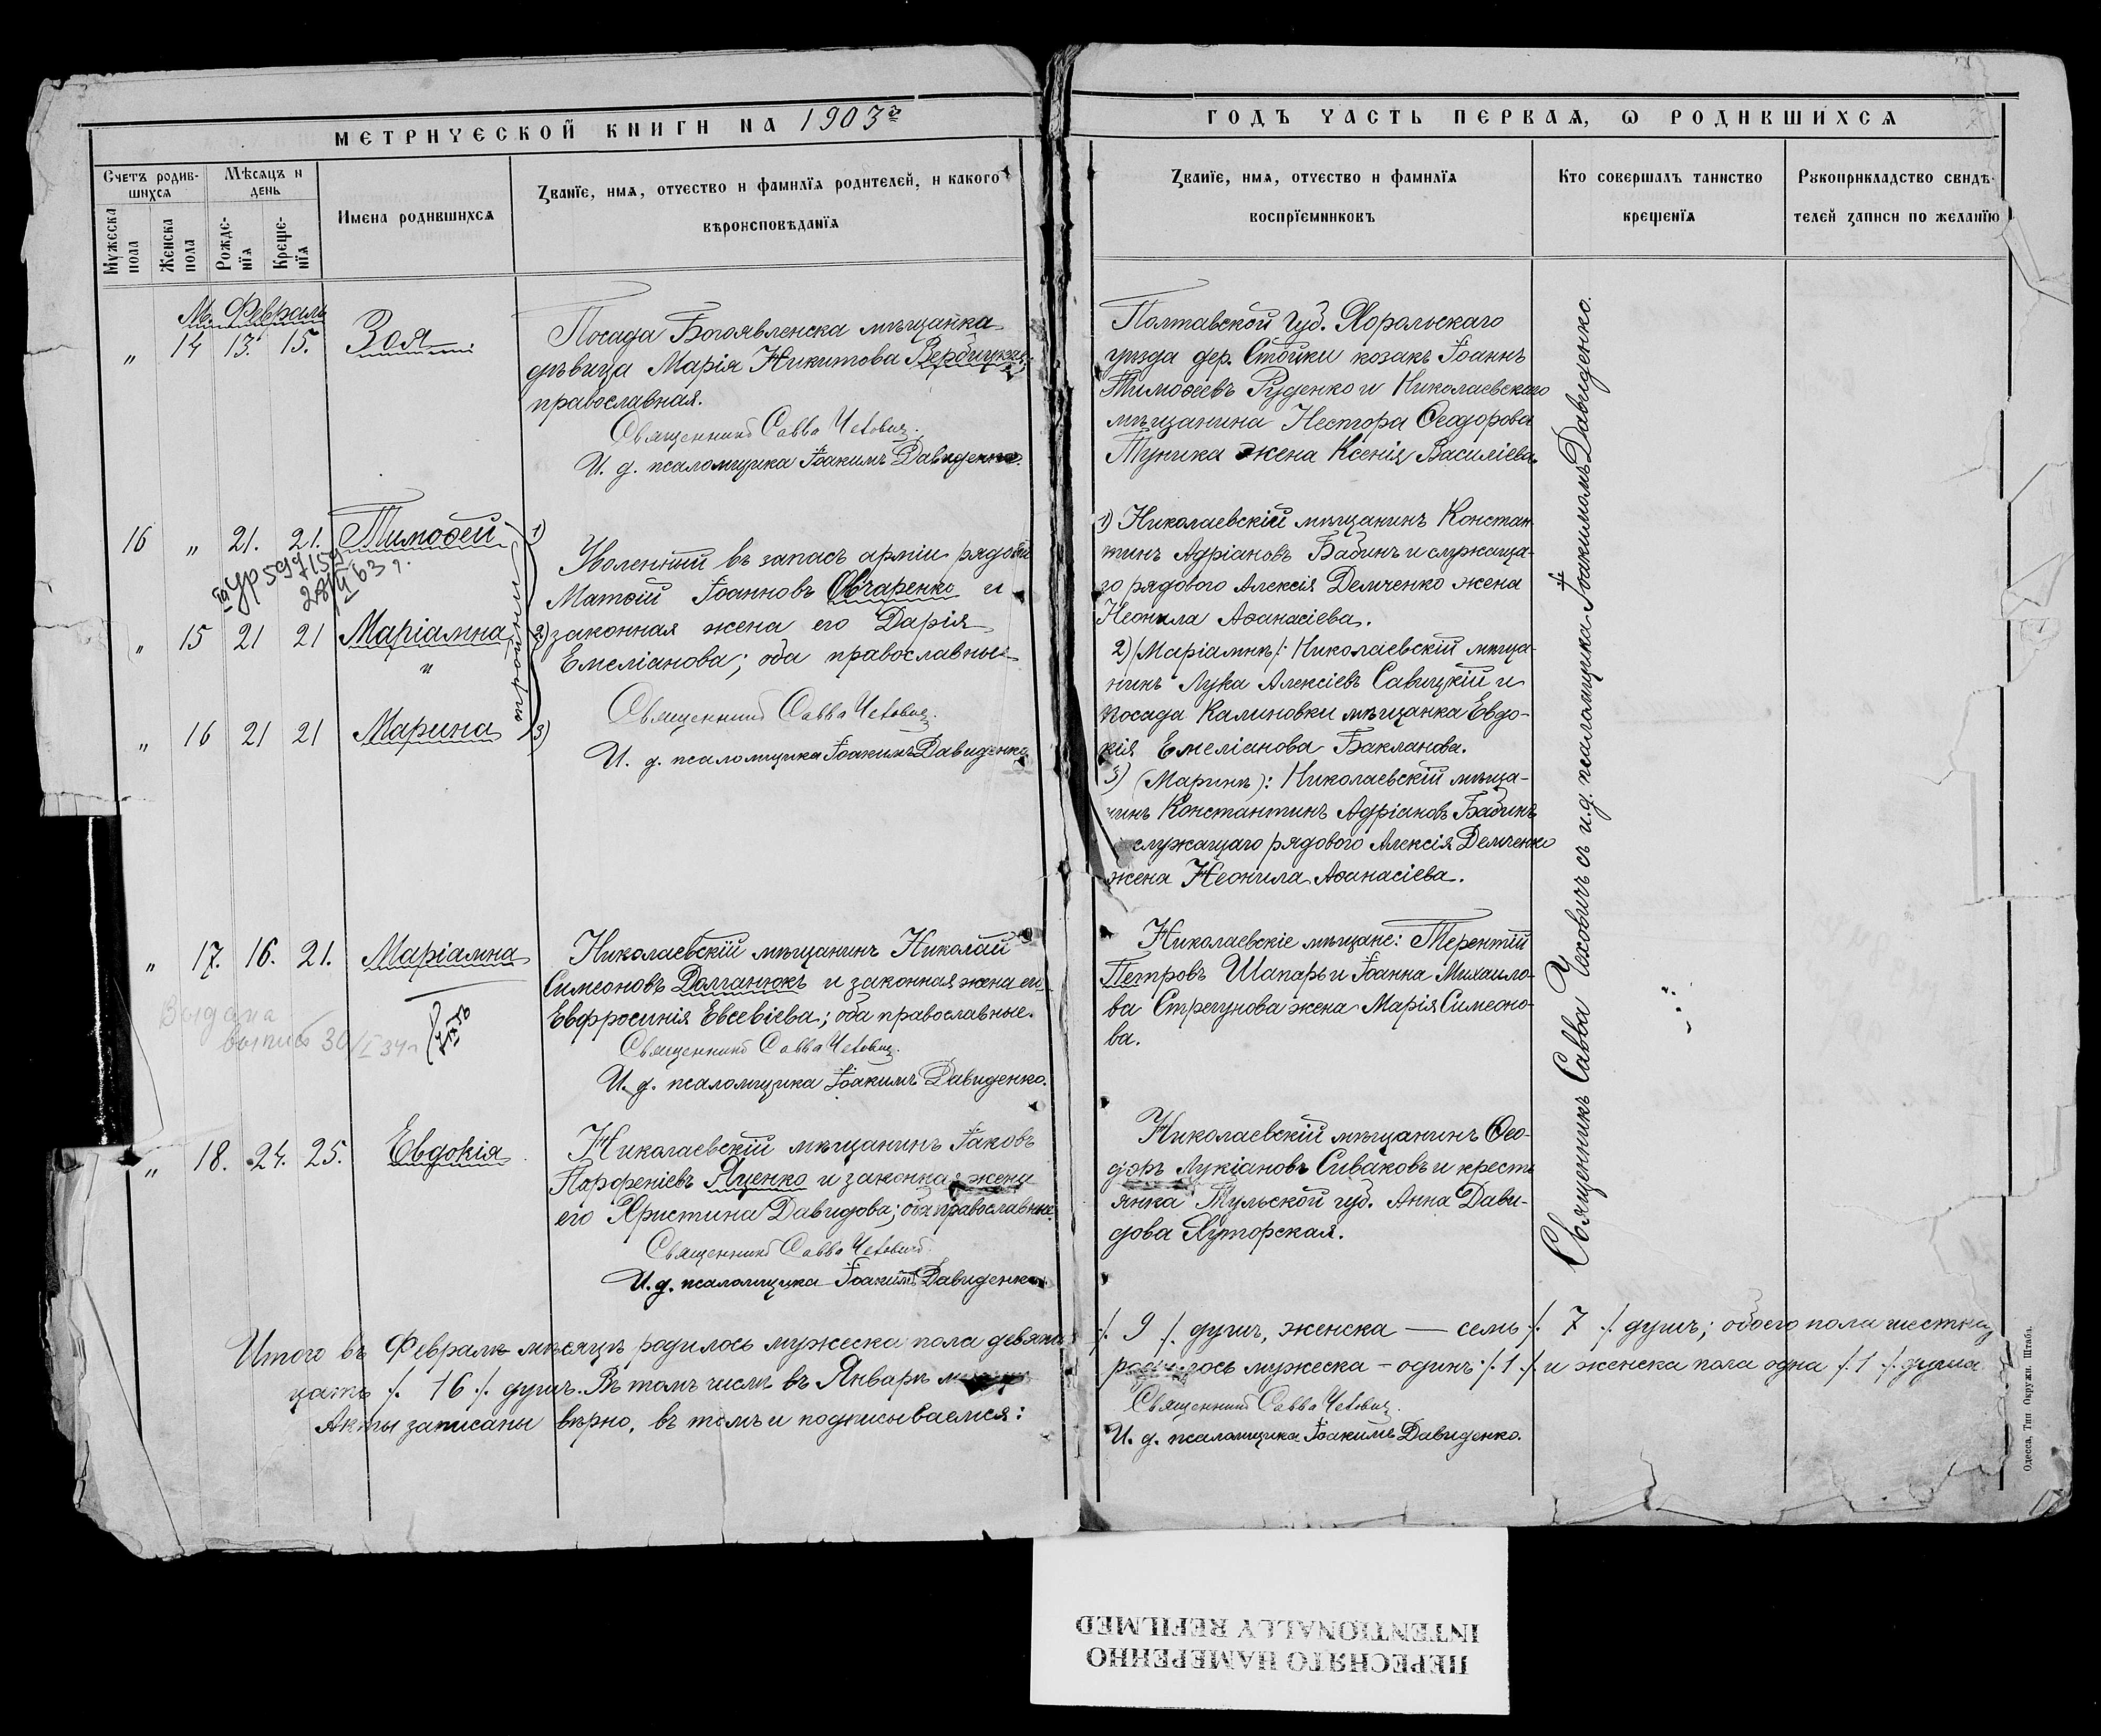 МЕТРИЧЕСКОЙ КНИГИ НА 1903й
ГОДЪ ЧАСТЬ ПЕРВАЯ, Ѡ РОДИВШИХСЯ
Счетъ родив-
шихся
Мѣсяцъ и
день
Мужеска
пола
Женска
пола
Рожде-
нїя
Креще-
нїя
Имена родившихся
Званїе, имя, отчество и фамилїя родителей, и какого
вѣроисповѣданїя
Званїе, имя, отчество и фамилїя
воспрїемниковъ
Кто совершалъ таинство
крещенїя
Рукоприкладство свидѣ-
телей записи по желанїю
М. Февраль
" 14 13. 15. Зоя
Посада Богоявленска мѣщанка
дѣвица Марія Никитова Вербицкая;
православная.
Священникъ Савва Чеховичъ.
И. д. псаломщика Іоакимъ Давиденко.
Полтавской губ. Хорольскаго
уѣзда дер. Стойки козакъ Іоаннъ
Тимоѳеевъ Руденко и Николаевскаго
мѣщанина Нестора Ѳеодорова
Туника жена Ксенія Василіева.
16 " 21. 21. Тимоѳей
" 15 21 21 Маріамна
и
" 16 21 21 Марина
тройни
1)
2)
3)
Уволенный въ запасъ арміи рядовой
Матѳій Іоанновъ Овчаренко и
законная жена его Дарія
Емеліанова; оба православные
Священникъ Савва Чеховичъ.
И. д. псаломщика Іоакимъ Давиденко
1) Николаевскій мѣщанинъ Констан
тинъ Адріановъ Бабинъ и служаща-
го рядового Алексія Демченко жена
Неонила Аѳанасіева.
2) (Маріамнѣ): Николаевскій мѣща-
нинъ Лука Алексіевъ Савицкій и
посада Калиновки мѣщанка Евдо-
кія Емеліанова Бакланова.
3) (Маринѣ): Николаевскій мѣща-
нинъ Константинъ Адріановъ Бабинъ
служащаго рядового Алексія Демченко
жена Неонила Аѳанасіева.
" 17. 16. 21. Маріамна
Выдана
выпись 30/I 34г
Николаевскій мѣщанинъ Николай
Симеоновъ Долганюкъ и законная жена его
Евфросинія Евсевіева; оба православные.
Священникъ Савва Чеховичъ.
И. д. псаломщика Іоакимъ Давиденко.
Николаевскіе мѣщане: Терентій
Петровъ Шапарь и Іоанна Михаило-
ва Стрегунова жена Марія Симеоно-
ва.
" 18. 24. 25. Евдокія
Николаевскій мѣщанинъ Іаковъ
Парѳеніевъ Яценко и законная жена
его Христина Давидова; оба православные.
Священникъ Савва Чеховичъ.
И. д. псаломщика Іоакимъ Давиденко.
Николаевскій мѣщанинъ Ѳео-
доръ Лукіановъ Сиваковъ и кресть
янка Тульской губ. Анна Дави-
дова Хуторская.
Священникъ Савва Чеховичъ съ и. д. псаломщика Іоакимомъ Давиденко.
Итого въ Февралѣ мѣсяцѣ родилось мужеска пола девять
/. 9 /. душъ, женска — семь /. 7 /. душъ; обоего пола шестнад
цать /. 16 /. душъ. Въ томъ числѣ въ Январѣ
родилось мужеска – одинъ /. 1 /. и женска пола одна /. 1 /. душа
Акты записаны вѣрно, въ томъ и подписываемся:
Священникъ Савва Чеховичъ.
И. д. псаломщика Іоакимъ Давиденко.
Одесса, Тип Окружн. Штаба.
ПЕРЕСНЯТО НАМЕРЕННО
INTENTIONALLY REFILMED